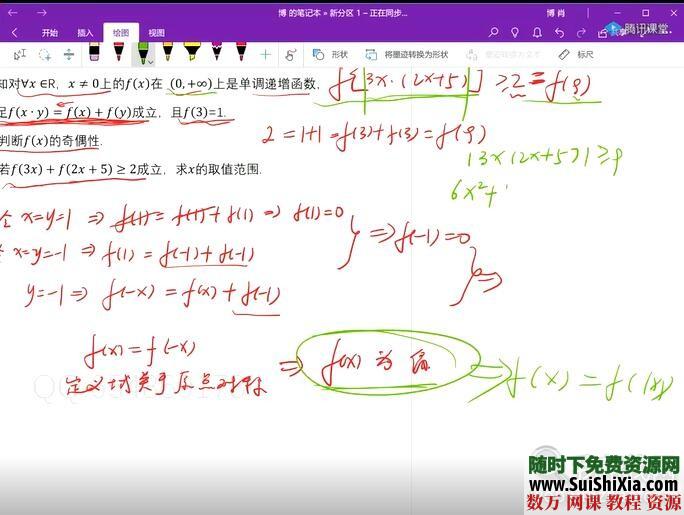 博 的笔记本 » 新分区 1 – 正在同步... 博 肖
腾讯课堂
开始 插入 绘图 视图
形状 将墨迹转换为形状 墨迹转换为文本 标尺
知对∀x∈R，x≠0上的f(x)在 (0,+∞)上是单调递增函数，
足f(x·y)=f(x)+f(y)成立，且f(3)=1.
判断f(x)的奇偶性.
若f(3x)+f(2x+5)≥2成立，求x的取值范围.
f[|3x·(2x+5)|]≥2=f(9)
2=1+1=f(3)+f(3)=f(9)
|3x(2x+5)|≥9
6x²+
x=y=1 ⇒ f(1)=f(1)+f(1) ⇒ f(1)=0
x=y=-1 ⇒ f(1)=f(-1)+f(-1)
⇒f(-1)=0
y=-1 ⇒ f(-x)=f(x)+f(-1)
⇒
f(x)=f(-x)
定义域关于原点对称
⇒ f(x)为偶 ⇒ f(x)=f(|x|)
随时下免费资源网
www.SuiShiXia.com
数万 网课 教程 资源